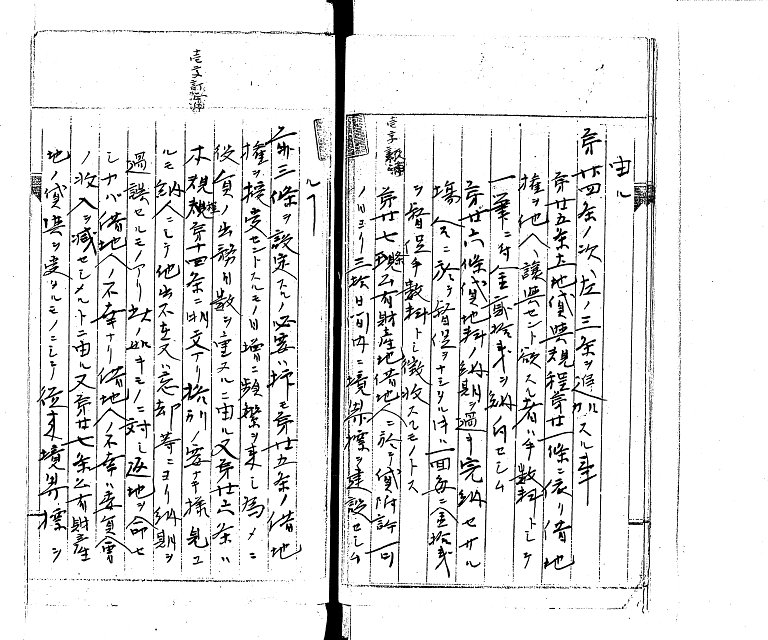 由ル
第廿四条ノ次ヘ左ノ三条ヲ追加スル事
第廿五条土地貸与規程第廿一条ニ依リ借地
権ヲ他人ヘ譲与セント欲スル者ハ手数料トシテ
一筆ニ付金貳拾銭ヲ納付セシム
第廿六條貸地料ノ納期ヲ過キ完納セサル
場合ニ於テ督促ヲナシタル時ハ一回毎ニ金拾銭
ヲ督促手数料トシ徴収スルモノトス
第廿七條区有財産地借地人ニ於テ貸附許可
ノ日ヨリ三拾日間内ニ境界標ヲ建設セシム
ルヿ
右三條ヲ設定スルノ必要ハ第廿五条ノ借地
権ヲ授受セントスルモノ日増ニ頻繁ヲ来シ為メニ
役員ノ出務日数ヲ重ヌルニ由ル又第廿六条ハ
本規程第十四条ニ明文アリ格別ノ要ナキ様見ユ
ルモ納人ニシテ他出不在又ハ忘却等ニヨリ納期ヲ
過誤セルモノアリ此ノ如キモノニ対シ返地ヲ命セ
シナハ借地人ノ不幸ナリ借地人ノ不幸ハ委員会
ノ収入ヲ減セシメルトニ由ル又第廿七条区有財産
地ノ貸与ヲ受タルモノニシテ従来境界標ヲ